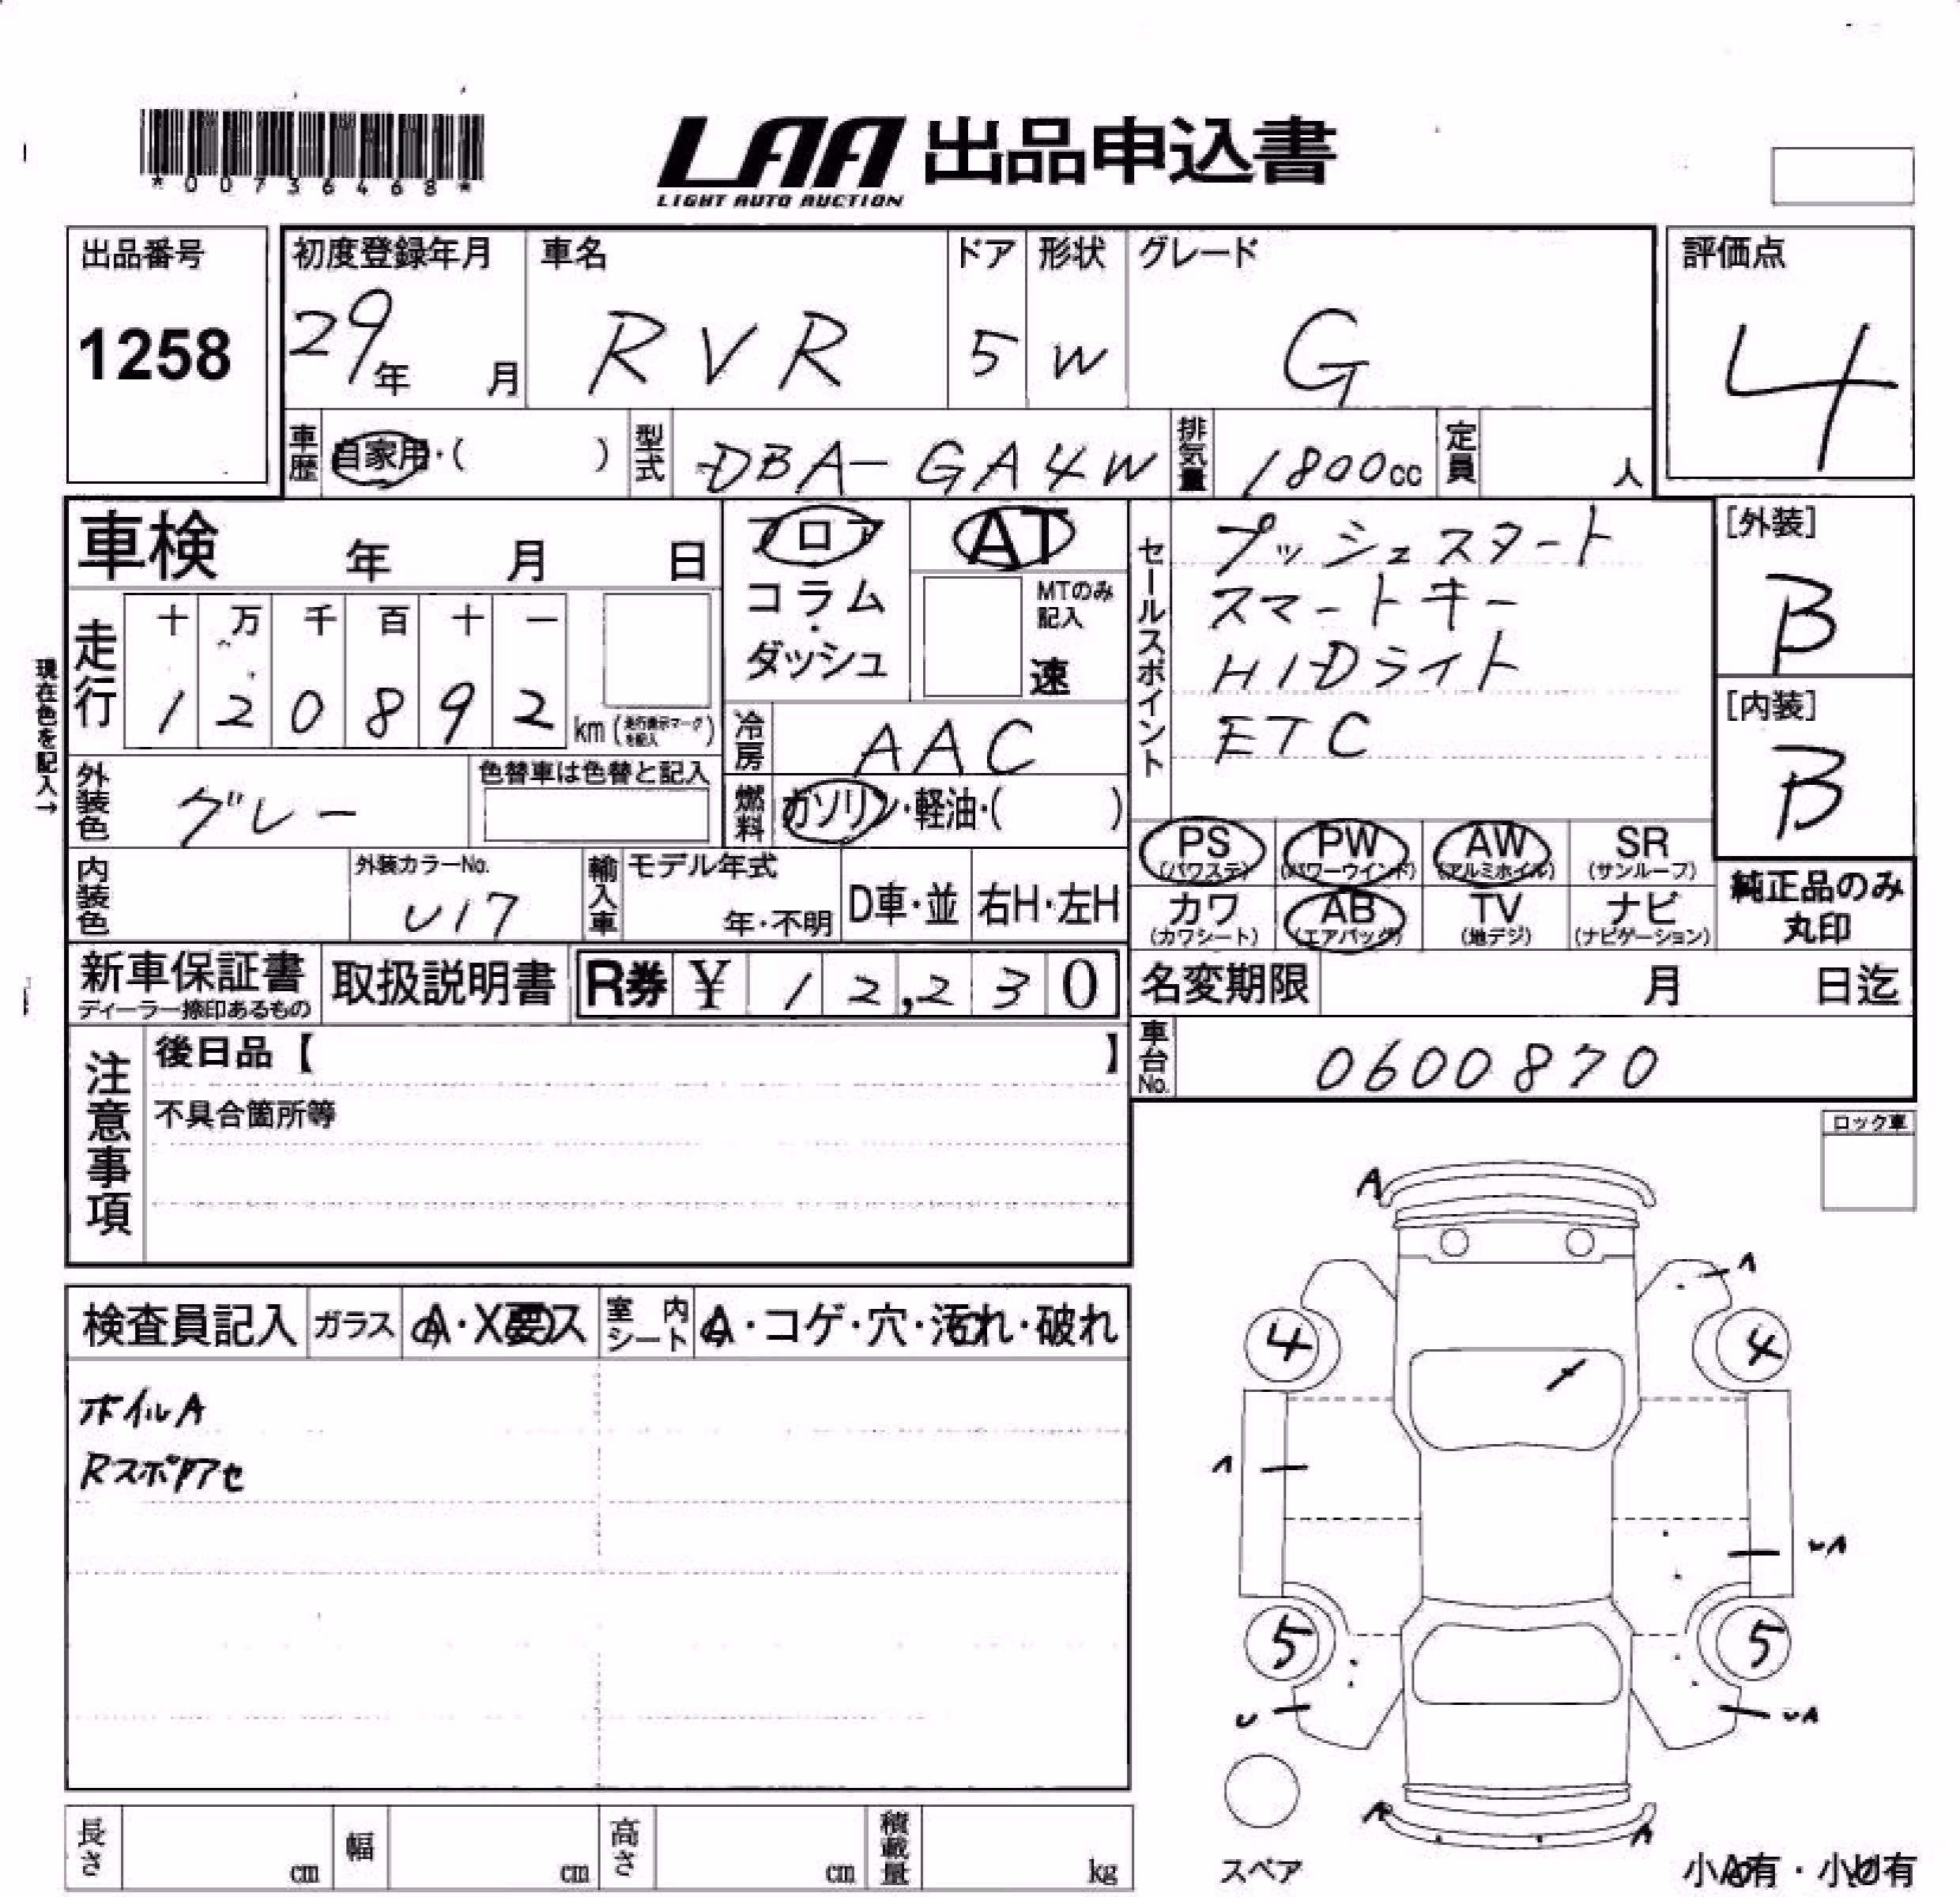 *00736468*
LAA 出品申込書
LIGHT AUTO AUCTION
出品番号
1258
初度登録年月
29年 月
車名
RVR
ドア
5
形状
W
グレード
G
評価点
4
車歴 自家用・( )
型式 DBA-GA4W
排気量 1800cc
定員 人
車検 年 月 日
走行
十 万 千 百 十 一
1 2 0 8 9 2 km (走行表示マークを記入)
現在色を記入→
外装色 グレー
色替車は色替と記入
内装色
外装カラーNo.
U17
フロア
コラム
・
ダッシュ
AT
MTのみ記入
速
冷房 AAC
燃料 ガソリン・軽油・( )
輸入車 モデル年式
年・不明
D車・並 右H・左H
セールスポイント
プッシュスタート
スマートキー
HIDライト
ETC
[外装]
B
[内装]
B
PS (パワステ)
PW (パワーウインド)
AW (アルミホイル)
SR (サンルーフ)
カワ (カワシート)
AB (エアバッグ)
TV (地デジ)
ナビ (ナビゲーション)
純正品のみ
丸印
新車保証書
ディーラー捺印あるもの
取扱説明書
R券 ¥ 12,230
名変期限 月 日迄
車台No. 0600870
注意事項
後日品【 】
不具合箇所等
ロック車
検査員記入 ガラス A・X要ス
室内シート A・コゲ・穴・汚れ・破れ
ホイルA
Rスポイラアセ
A
A
4
4
A
UA
5
5
U
UA
A
A
スペア
小A有・小U有
長さ cm
幅 cm
高さ cm
積載量 kg